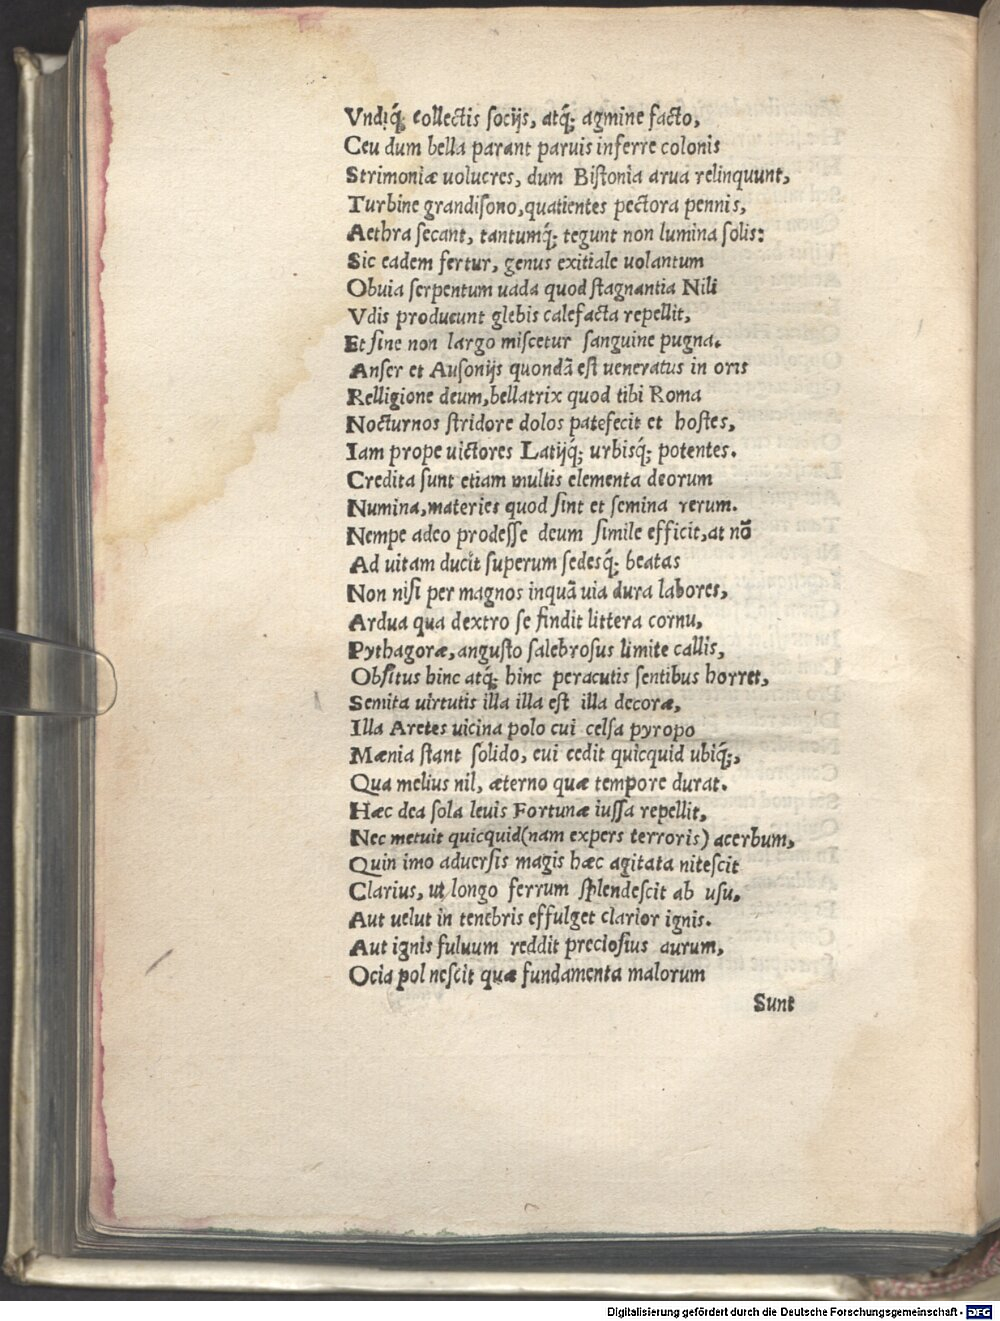 Vndiq́; collectis socijs, atq́; agmine facto,
Ceu dum bella parant paruis inferre colonis
Strimoniæ uolucres, dum Bistonia arua relinquunt,
Turbine grandisono, quatientes pectora pennis,
Aethra secant, tantumq́; tegunt non lumina solis:
Sic eadem fertur, genus exitiale uolantum
Obuia serpentum uada quod stagnantia Nili
Vdis producunt glebis calefacta repellit,
Et sine non largo miscetur sanguine pugna.
Anser et Ausonijs quondã est ueneratus in oris
Relligione deum, bellatrix quod tibi Roma
Nocturnos stridore dolos patefecit et hostes,
Iam prope uictores Latijq́; urbisq́; potentes.
Credita sunt etiam multis elementa deorum
Numina, materies quod sint et semina rerum.
Nempe adeo prodesse deum simile efficit, at nõ
Ad uitam ducit superum sedesq́; beatas
Non nisi per magnos inquã uia dura labores,
Ardua qua dextro se findit littera cornu,
Pythagoræ, angusto salebrosus limite callis,
Obsitus hinc atq́; hinc peracutis sentibus horret,
Semita uirtutis illa illa est illa decoræ,
Illa Aretes uicina polo cui celsa pyropo
Mœnia stant solido, cui cedit quicquid ubiq́;,
Qua melius nil, æterno quæ tempore durat.
Hæc dea sola leuis Fortunæ iussa repellit,
Nec metuit quicquid (nam expers terroris) acerbum,
Quin imo aduersis magis hæc agitata nitescit
Clarius, ut longo ferrum splendescit ab usu,
Aut uelut in tenebris effulget clarior ignis.
Aut ignis fuluum reddit preciosius aurum,
Ocia pol nescit quæ fundamenta malorum
Sunt
Digitalisierung gefördert durch die Deutsche Forschungsgemeinschaft - DFG